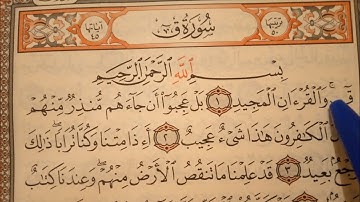 ترتيبها ٥٠
سُورَةُ قٓ
آياتها ٤٥
بِسْمِ ٱللَّهِ ٱلرَّحْمَٰنِ ٱلرَّحِيمِ
قٓ وَٱلْقُرْءَانِ ٱلْمَجِيدِ ١ بَلْ عَجِبُوٓا۟ أَن جَآءَهُم مُّنذِرٌ مِّنْهُمْ
ٱلْكَٰفِرُونَ هَٰذَا شَىْءٌ عَجِيبٌ ٢ أَءِذَا مِتْنَا وَكُنَّا تُرَابًا ۖ ذَٰلِكَ
رَجْعٌۢ بَعِيدٌ ٣ قَدْ عَلِمْنَا مَا تَنقُصُ ٱلْأَرْضُ مِنْهُمْ ۖ وَعِندَنَا كِتَٰبٌ